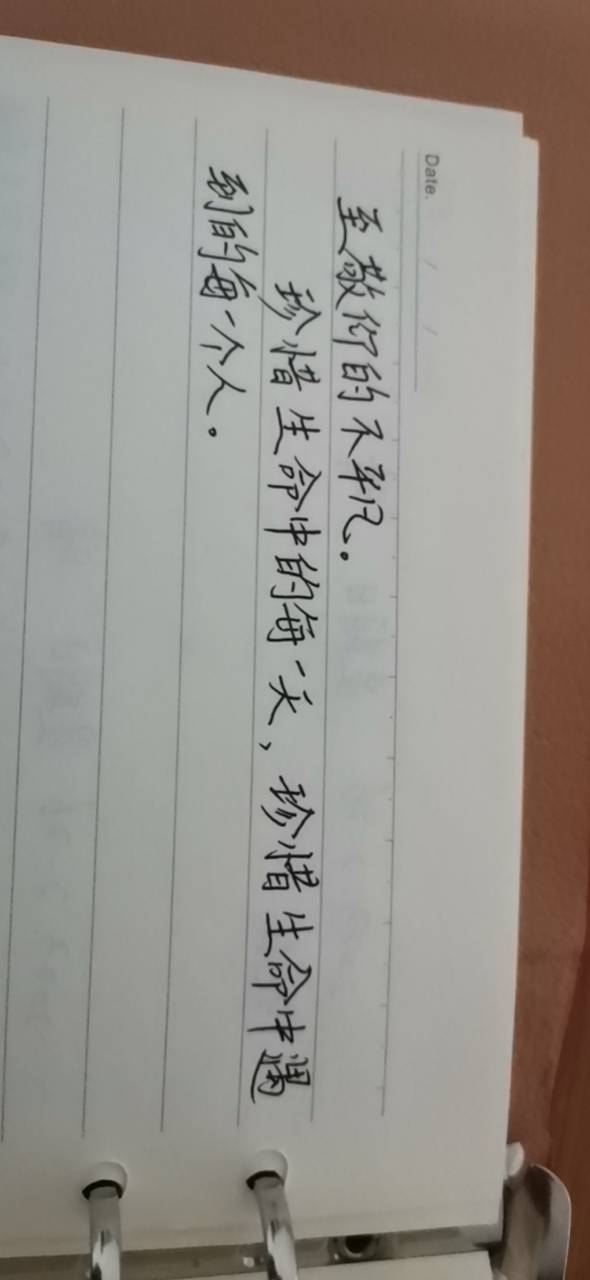 Date.
至敬仰的不平凡。
珍惜生命中的每一天，珍惜生命中遇
到的每一个人。